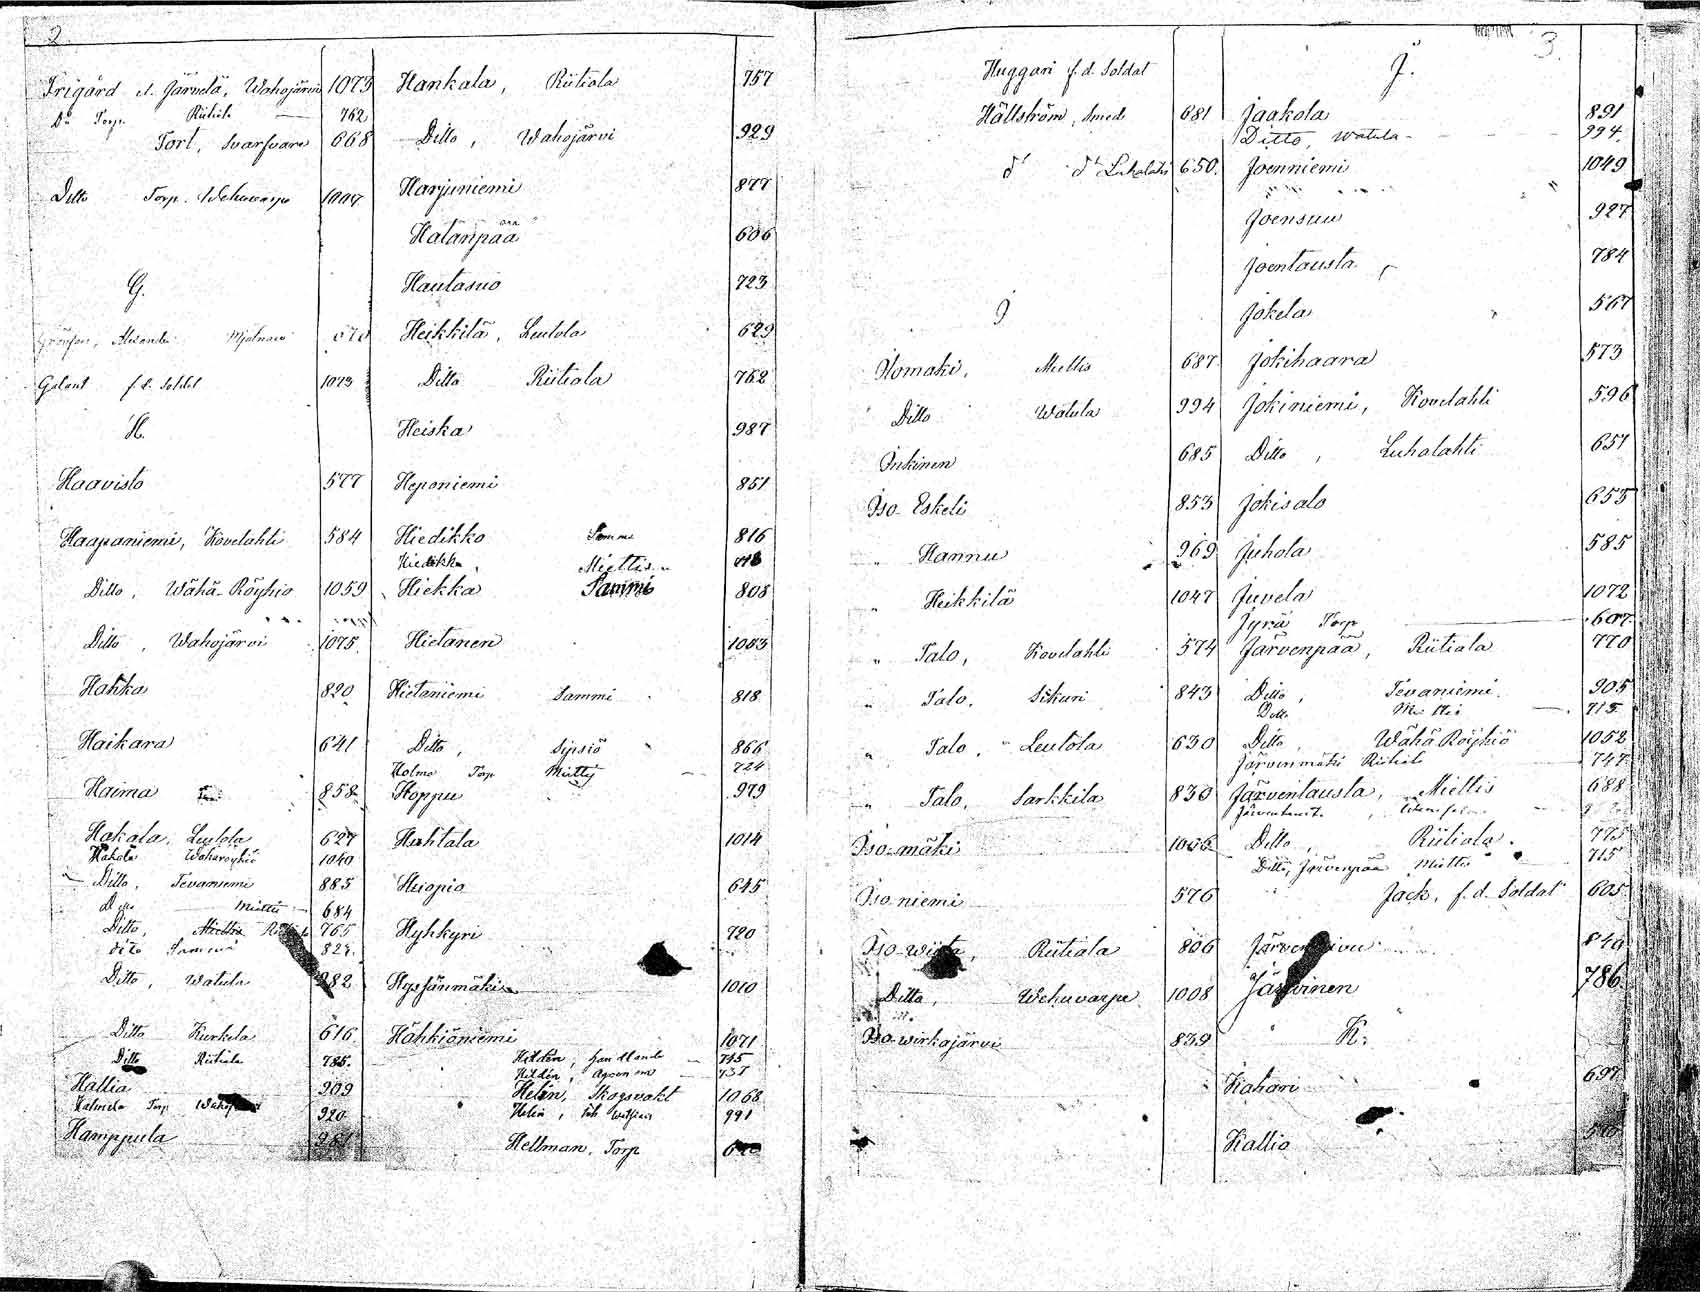 2
Frigård st. Järvelä, Wahojärvi 1073
Do Torp. Riitiala 762
Torl, Svarfvare 668
Ditto Torp. Wehuvarpe
G.
Galant f. d. Soldat 1073
H.
Haavisto 577
Haapaniemi, Kovelahti 584
Ditto, Wähä-Röyhiö 1059
Ditto, Wahojärvi 1075
Hahka 820
Haikara 641
Haima 858
Hakala, Leutola 627
Hakala Wäharöyhiö 1040
Ditto, Tevaniemi 885
Ditto Miettis 684
Ditto, 765
dito Sammi
Ditto, Watula 982
Ditto Kurkela 616
Ditto Riitiala 785.
Hallia 909
Torp 920
Hamppula
Hankala, Riitiala 757
Ditto, Wahojärvi 929
Harjuniemi 877
Hatanpää 606
Hautasuo 723
Heikkilä, Leutola 629
Ditto Riitiala 762
Heiska 987
Heponiemi 851
Hiedikko Sammi 816
Hiedikko, Miettis
Hiekka Sammi 808
Hietanen 1053
Hietaniemi Sammi 818
Ditto, Sipsiö 866
Holma Torp Miettis 724
Hoppu 979
Huhtala 1014
Huopio 645
Hyhkyri 720
Hysjänmäki 1010
Hähkiöniemi 1071
Hildén, 745
Hildén,
Helén, Skogsvakt 1068
Helin, 991
Hellman, Torp
3.
Huggari f. d. Soldat
Hällström, Smed 681
do do Luhalahti 650.
I
Ilomäki, Miettis 687
Ditto Watula 994
Inkinen 685
Iso-Eskeli 853
" Hannu 969
" Heikkilä 1047
" Talo, Kovelahti 574
" Talo, Sikuri 843
" Talo, Leutola 630
" Talo, Sarkkila 830
Iso-mäki 1036
Iso niemi 576
Iso-wiita, Riitiala 806
Ditto, Wehuvarpe 1008
Iso-wirkajärvi 839
J.
Jaakola 891
Ditto, Watula 994.
Joenniemi 1049
Joensuu 927
Joentausta 784
Jokela 567
Jokihaara 573
Jokiniemi, Kovelahti 596
Ditto, Luhalahti 651
Jokisalo 653
Juhola 585
Juvela 1072
Jyrä Torp 607.
Järvenpää, Riitiala 770
Ditto, Tevaniemi. 905
Ditto Miettis 715
Ditto, Wähä Röyhiö 1052
Järvenmäki Riitiala 747
Järventausta, Miettis 688
Järventaust.
Ditto, Riitiala. 775
Ditto, Järvenpää Miettis 715
Jack, f. d. Soldat 605
Järvensivu 846
Järvinen 786
K.
Kahari 697
Kallio